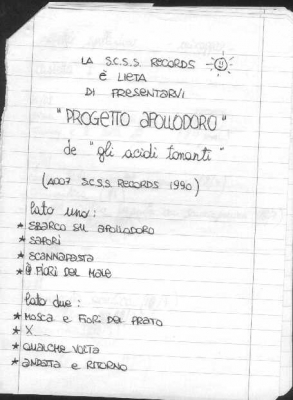 LA S.C.S.S. RECORDS
È LIETA
DI PRESENTARVI
"PROGETTO APOLLODORO"
de "gli acidi tonanti"
(A007 S.C.S.S. RECORDS 1990)
lato uno:
* SBARCO SU APOLLODORO
* SAPORI
* SCANNAPASTA
* I FIORI DEL MALE
lato due:
* MOSCA E FIORI DEL PRATO
* X
* QUALCHE VOLTA
* ANDATA E RITORNO